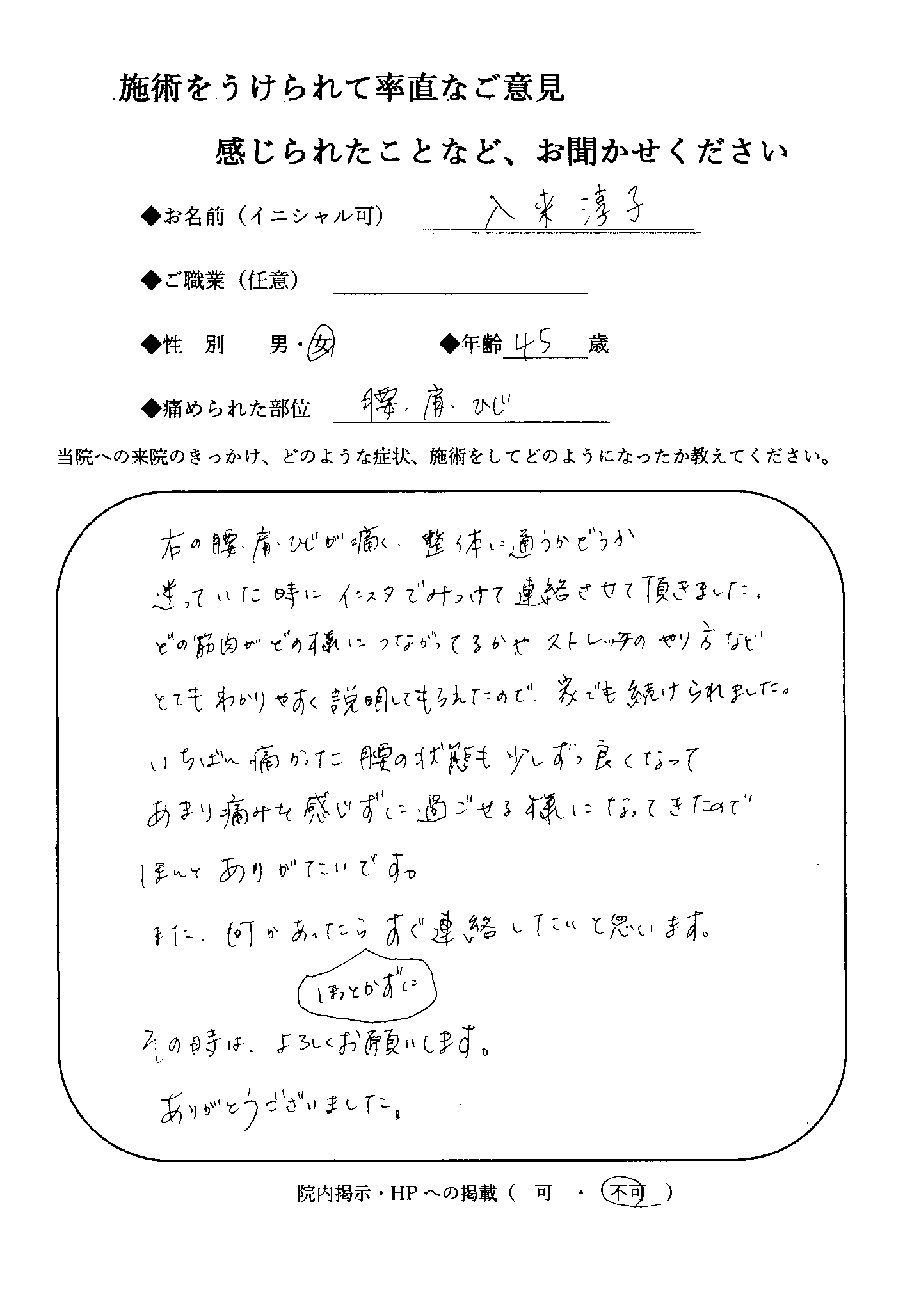 施術をうけられて率直なご意見
感じられたことなど、お聞かせください
◆お名前（イニシャル可） 入来 淳子
◆ご職業（任意）
◆性 別 男・女 ◆年齢 45 歳
◆痛められた部位 腰・肩・ひじ
当院への来院のきっかけ、どのような症状、施術をしてどのようになったか教えてください。
右の腰・肩・ひじが痛く、整体に通うかどうか
迷っていた時にインスタでみつけて連絡させて頂きました。
どの筋肉がどの様につながってるかや ストレッチのやり方など
とてもわかりやすく説明してもらえたので、家でも続けられました。
いちばん痛かった腰の状態も少しずつ良くなって
あまり痛みを感じずに過ごせる様になってきたので
ほんとありがたいです。
また、何かあったらすぐ連絡したいと思います。
ほっとかずに
その時は、よろしくお願いします。
ありがとうございました。
院内掲示・HPへの掲載（ 可 ・ 不可 ）